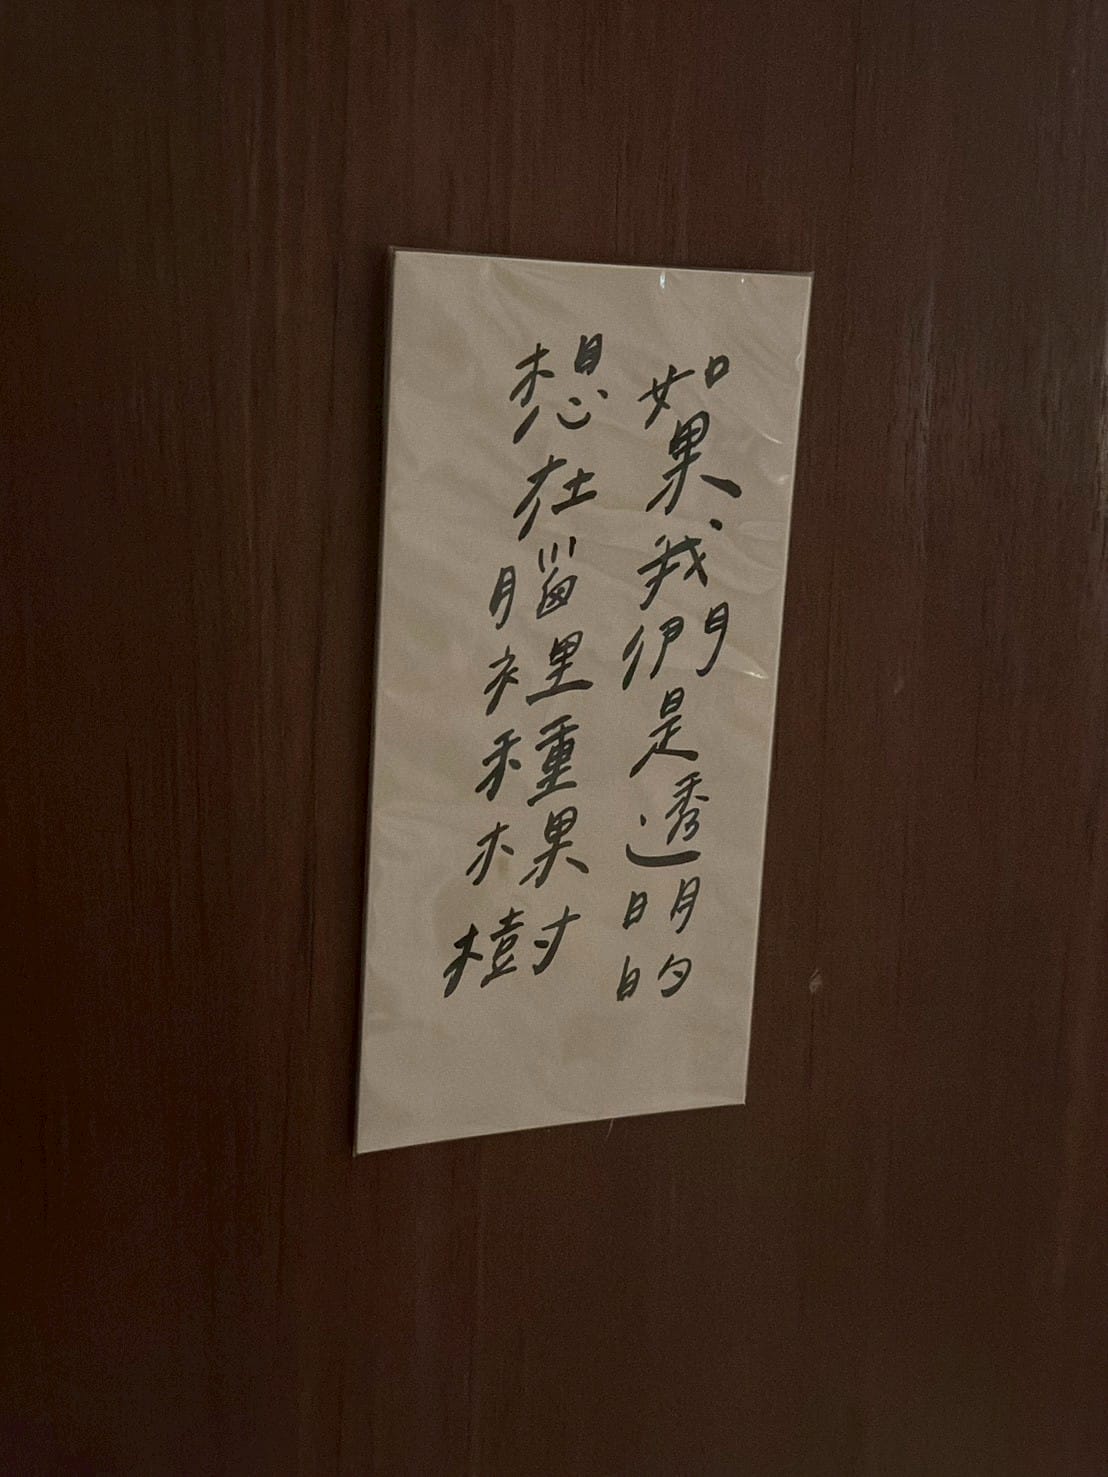 如果我們是透明的
想在腦裡種棵樹